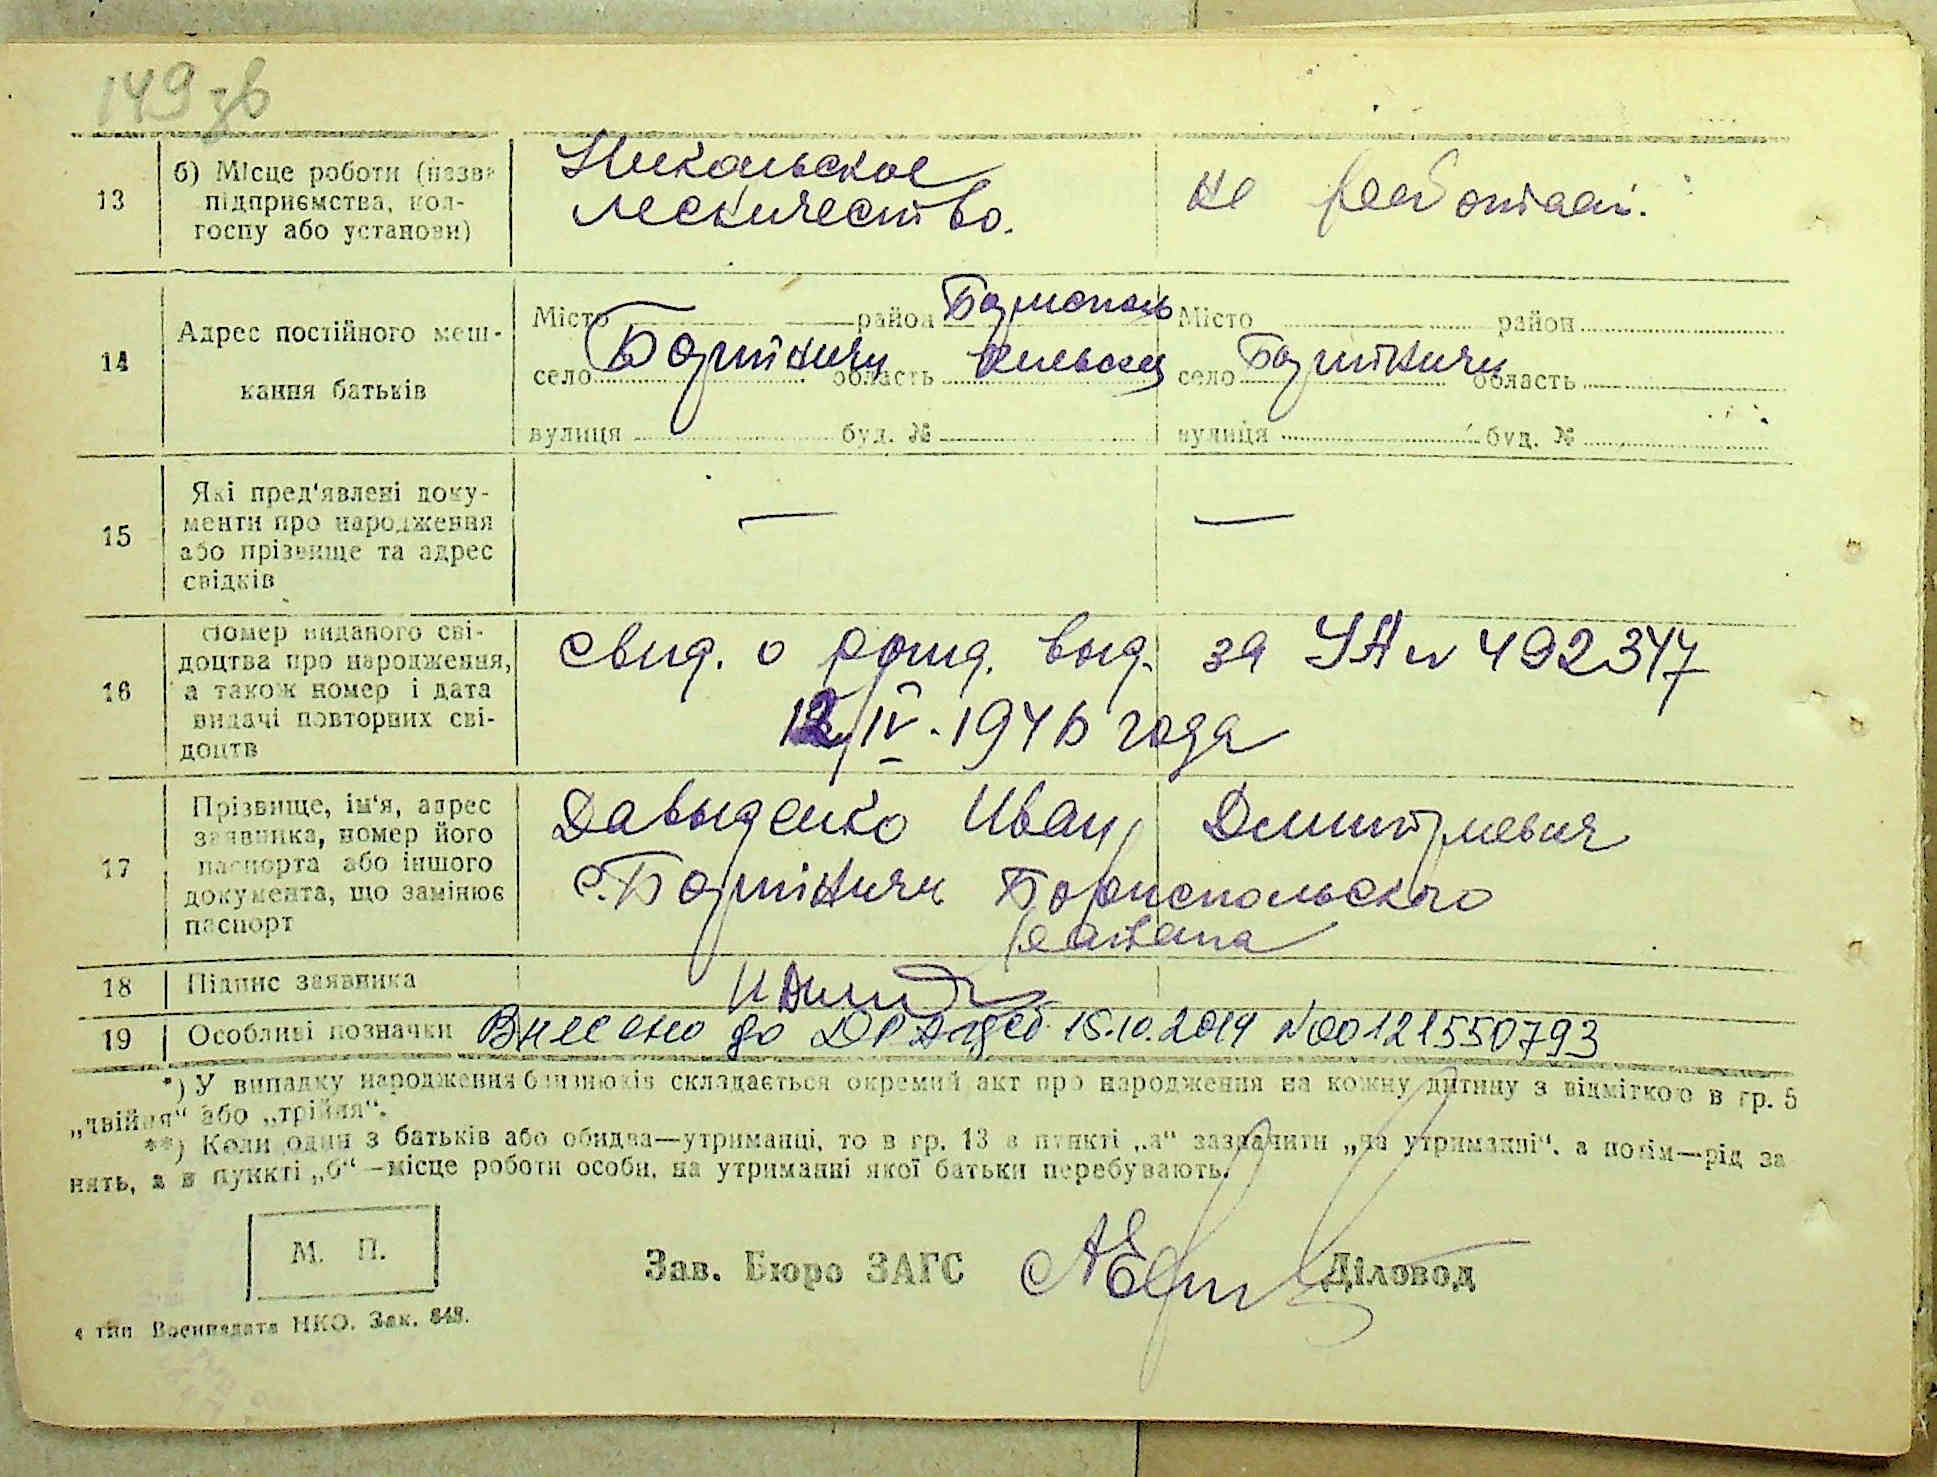 149 зв
13
б) Місце роботи (назва
підприємства, кол-
госпу або установи)
Никольское
лесничество.
не работает.
14
Адрес постійного меш-
кання батьків
Місто район
село Бортничи область Киевская
вулиця буд. №
Місто район
село Бортничи область
вулиця буд. №
15
Які пред'явлені доку-
менти про народження
або прізвище та адрес
свідків
—
—
16
Номер виданого сві-
доцтва про народження,
а також номер і дата
видачі повторних сві-
доцтв
свид. о рожд. выд. за УА № 492347
12/IV-1946 года
17
Прізвище, ім'я, адрес
заявника, номер його
паспорта або іншого
документа, що замінює
паспорт
Давыденко Иван Дмитриевич
с. Бортничи Бориспольского
района
18
Підпис заявника
19
Особливі позначки
Внесено до 15.10.2019 №00121550793
*) У випадку народження близнюків складається окремий акт про народження на кожну дитину з відміткою в гр. 5
„двійня“ або „трійня“.
**) Коли один з батьків або обидва—утриманці, то в гр. 13 в пункті „а“ зазначити „на утриманні“, а потім—рід за
нять, а в пункті „б“ —місце роботи особи, на утриманні якої батьки перебувають.
М. П.
Зав. Бюро ЗАГС
Діловод
4 тип Воениздата НКО. Зак. 848.